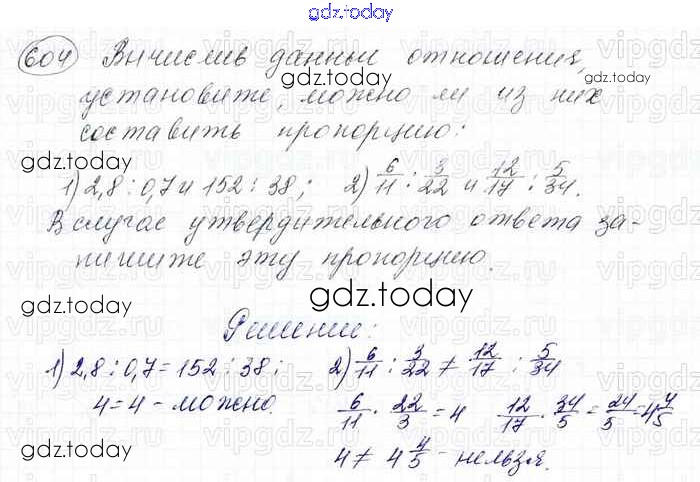 gdz.today
604 Вычислив данные отношения,
установите, можно ли из них
составить пропорцию:
1) 2,8 : 0,7 и 152 : 38; 2) 6/11 : 3/22 и 12/17 : 5/34.
В случае утвердительного ответа за-
пишите эту пропорцию.
Решение:
1) 2,8 : 0,7 = 152 : 38; 2) 6/11 : 3/22 ≠ 12/17 : 5/34
4 = 4 - можно. 6/11 · 22/3 = 4 12/17 · 34/5 = 24/5 = 4 4/5
4 ≠ 4 4/5 - нельзя.
gdz.today
gdz.today
gdz.today
gdz.today
gdz.today
gdz.today
gdz.today